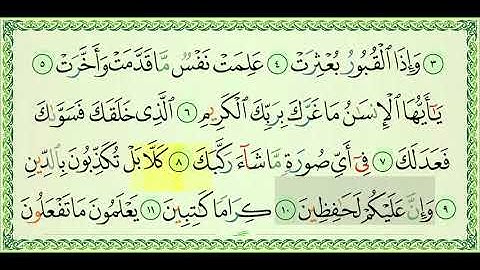 ٣ وَإِذَا الْقُبُورُ بُعْثِرَتْ ٤ عَلِمَتْ نَفْسٌ مَّا قَدَّمَتْ وَأَخَّرَتْ ٥
يَٰٓأَيُّهَا الْإِنسَٰنُ مَا غَرَّكَ بِرَبِّكَ الْكَرِيمِ ٦ الَّذِى خَلَقَكَ فَسَوَّىٰكَ
فَعَدَلَكَ ٧ فِىٓ أَىِّ صُورَةٍ مَّا شَآءَ رَكَّبَكَ ٨ كَلَّا بَلْ تُكَذِّبُونَ بِالدِّينِ
٩ وَإِنَّ عَلَيْكُمْ لَحَٰفِظِينَ ١٠ كِرَامًا كَٰتِبِينَ ١١ يَعْلَمُونَ مَا تَفْعَلُونَ